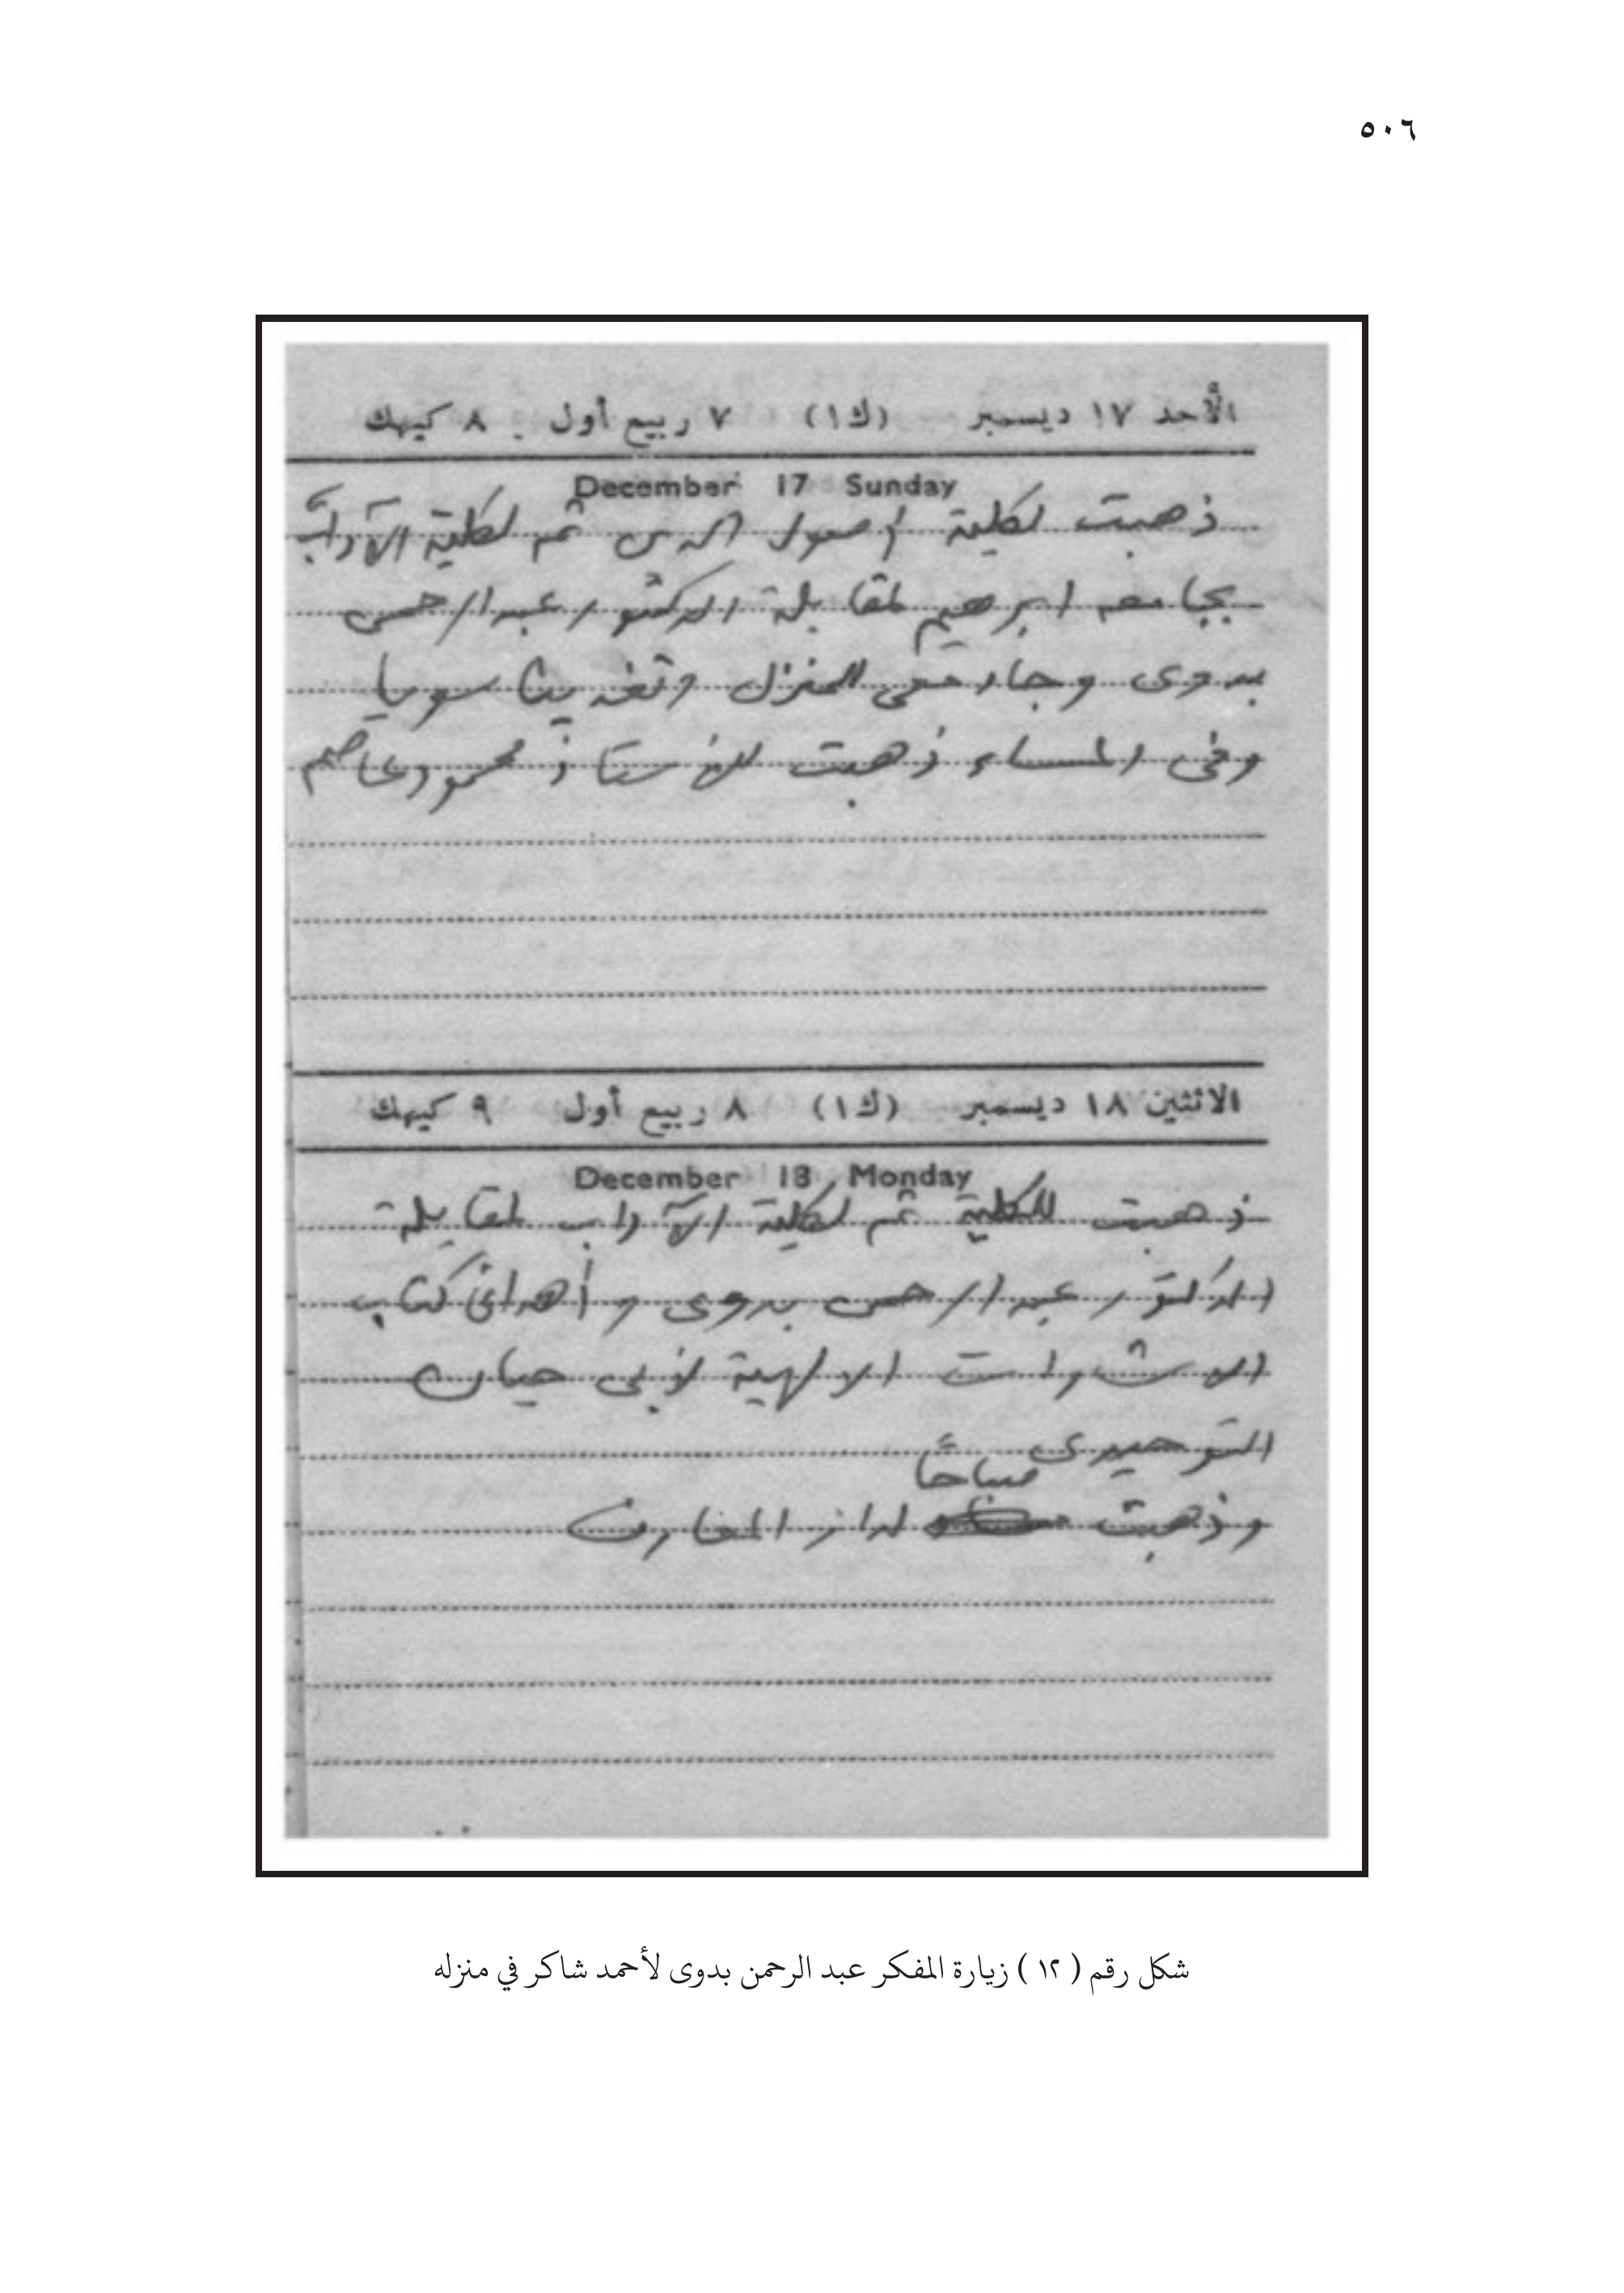 ٥٠٦
الأحد ١٧ ديسمبر (ك١) ٧ ربيع أول ٨ كيهك
December 17 Sunday
ذهبت لكلية أصول الدين ثم لكلية الآداب
بجامعة ابرهيم لمقابلة الدكتور عبد الرحمن
بدوى وجاء معى للمنزل وتغدينا سويا
وفى المساء ذهبت للأستاذ محمود عاصم
الاثنين ١٨ ديسمبر (ك١) ٨ ربيع أول ٩ كيهك
December 18 Monday
ذهبت للكلية ثم لكلية الآداب لمقابلة
الدكتور عبد الرحمن بدوى وأهدانى كتاب
الاشارات الالهية لأبى حيان
التوحيدى
صباحاً
وذهبت لدار المعارف
شكل رقم ( ١٢ ) زيارة المفكر عبد الرحمن بدوى لأحمد شاكر في منزله